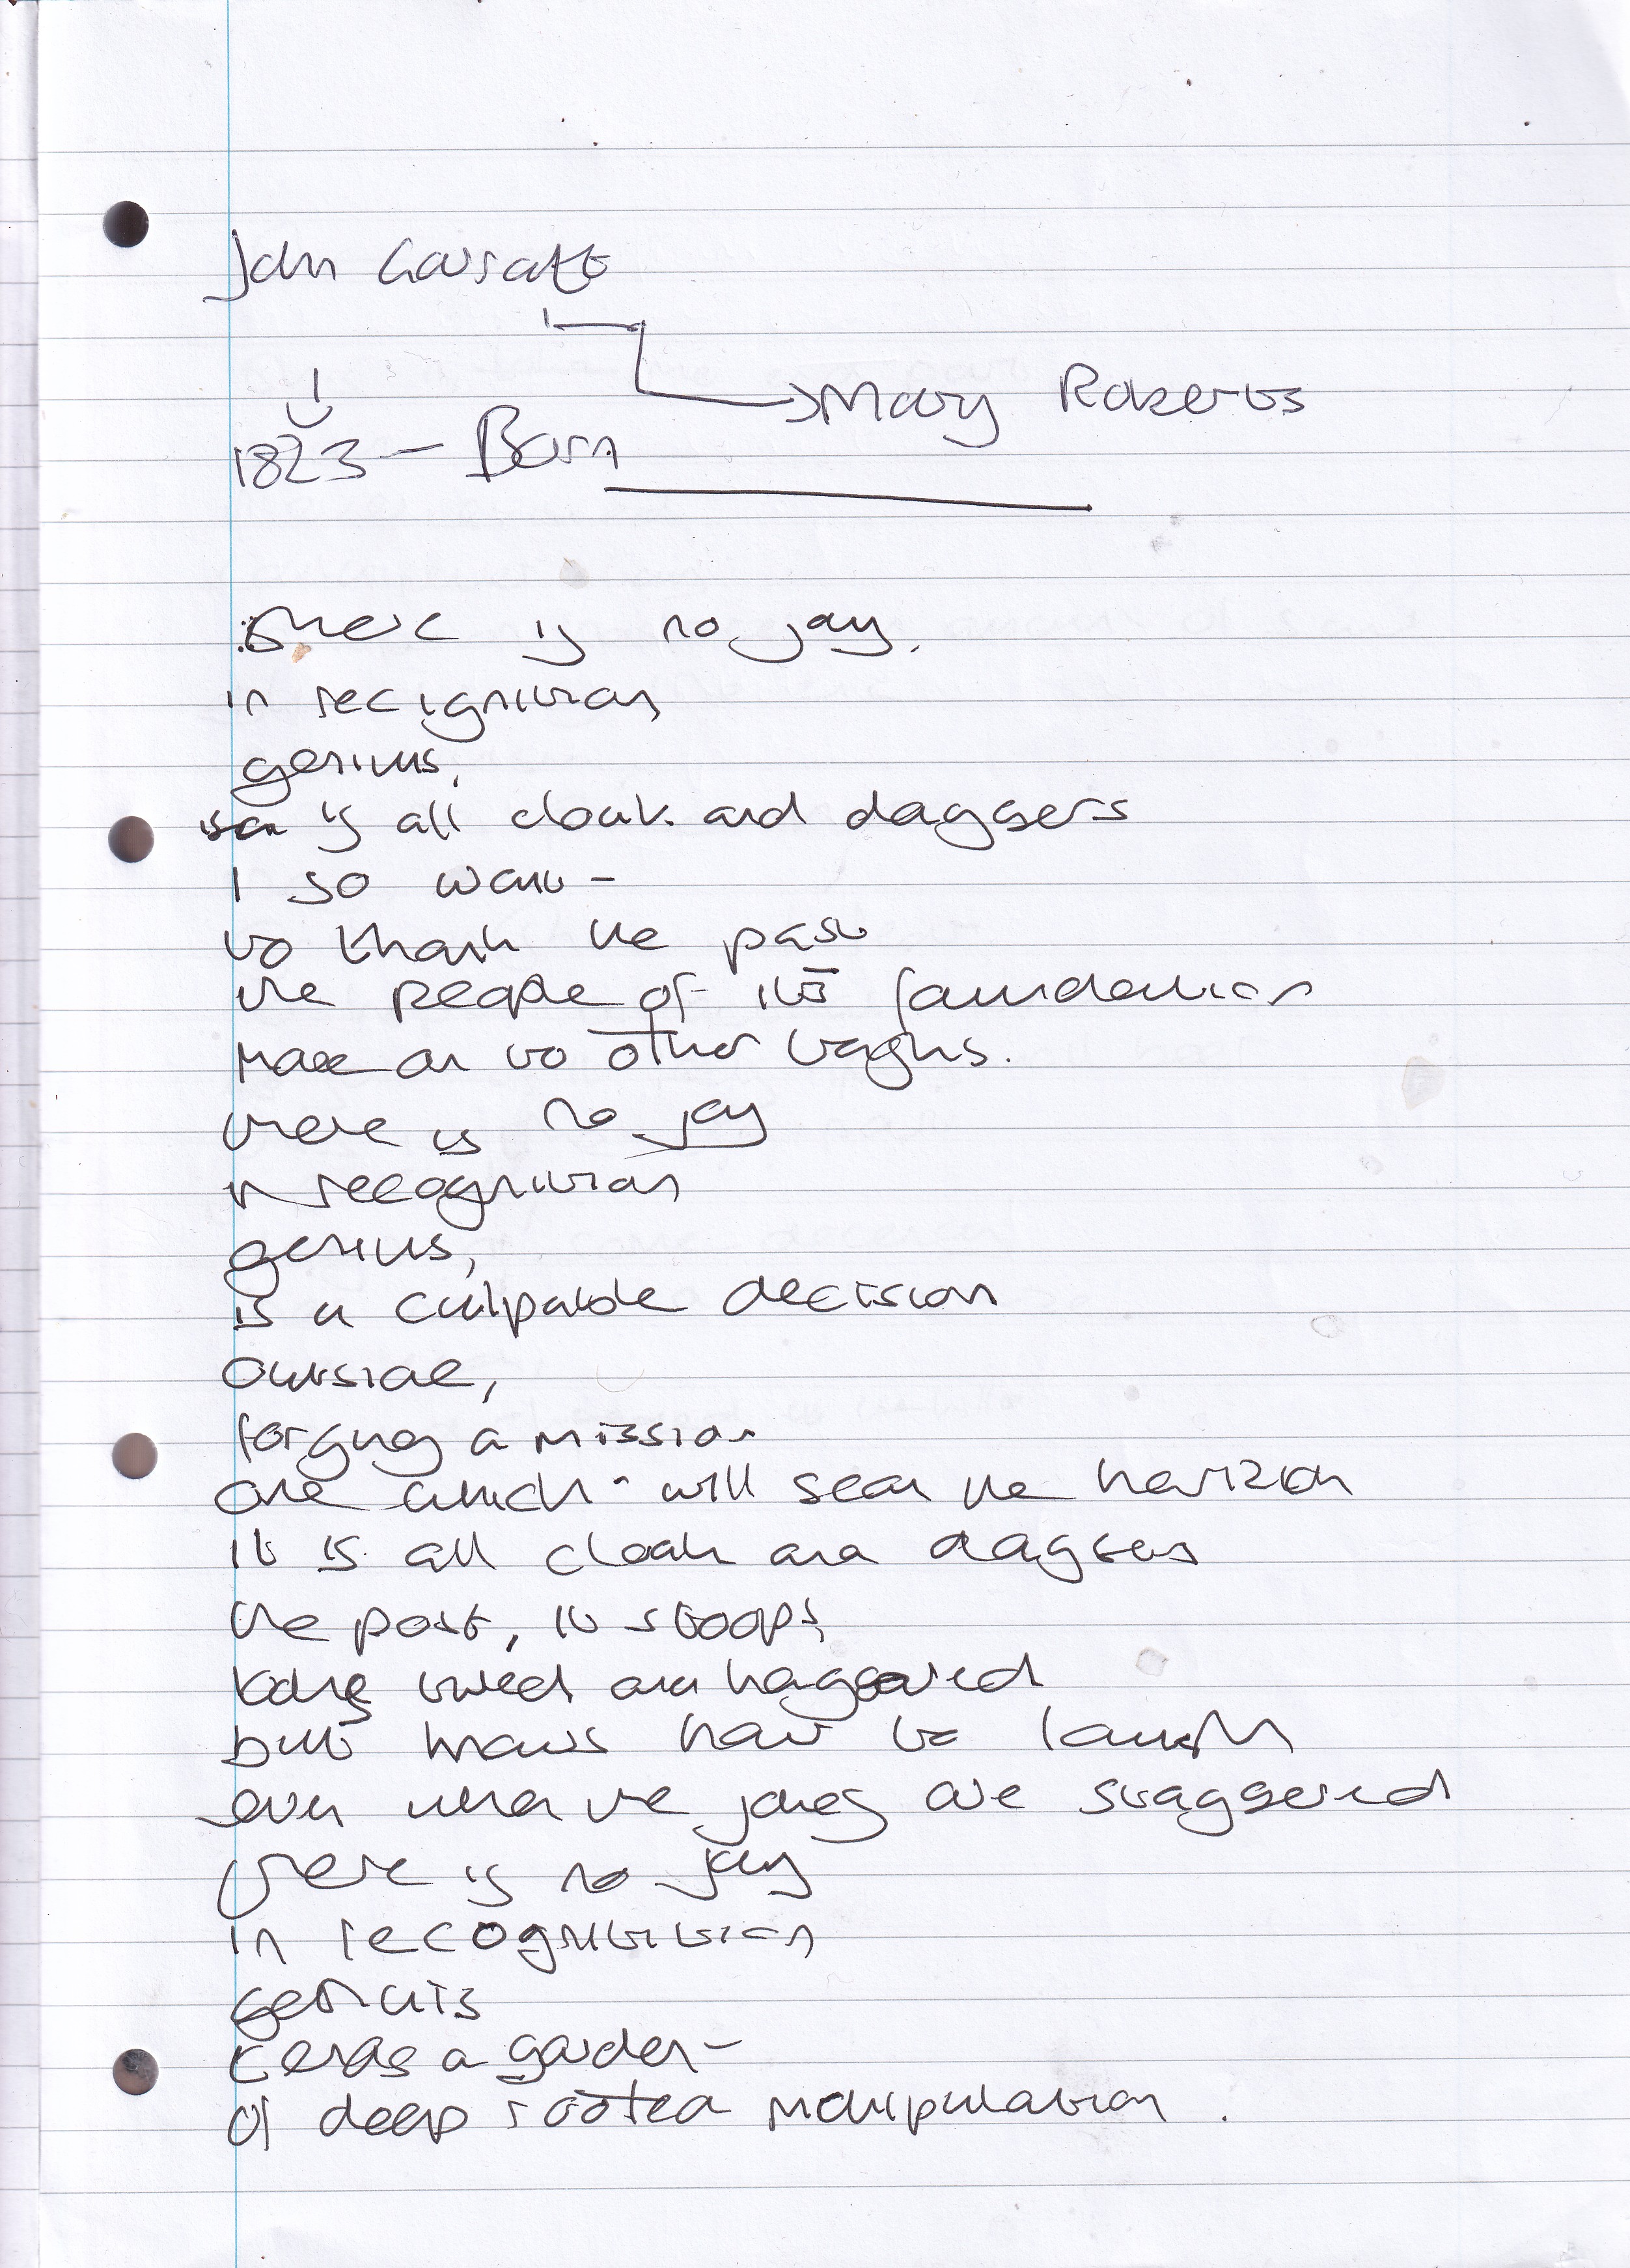 John
Mary Roberts
1823 - Born
there is no joy.
in recignition
genius,
is all cloak and daggers
I so want -
to thank the past
the people of its foundation
move on to other
there is no joy
in recognition
genius,
is a culpable decision
outside,
forging a mission
one which will sear the horizon
it is all cloak and daggers
the past, it stoops
tired and haggared
but knows how to laugh
even when the jokes are staggered
there is no joy
in recognitition
genius
tends a garden -
of deep rooted manipulation.